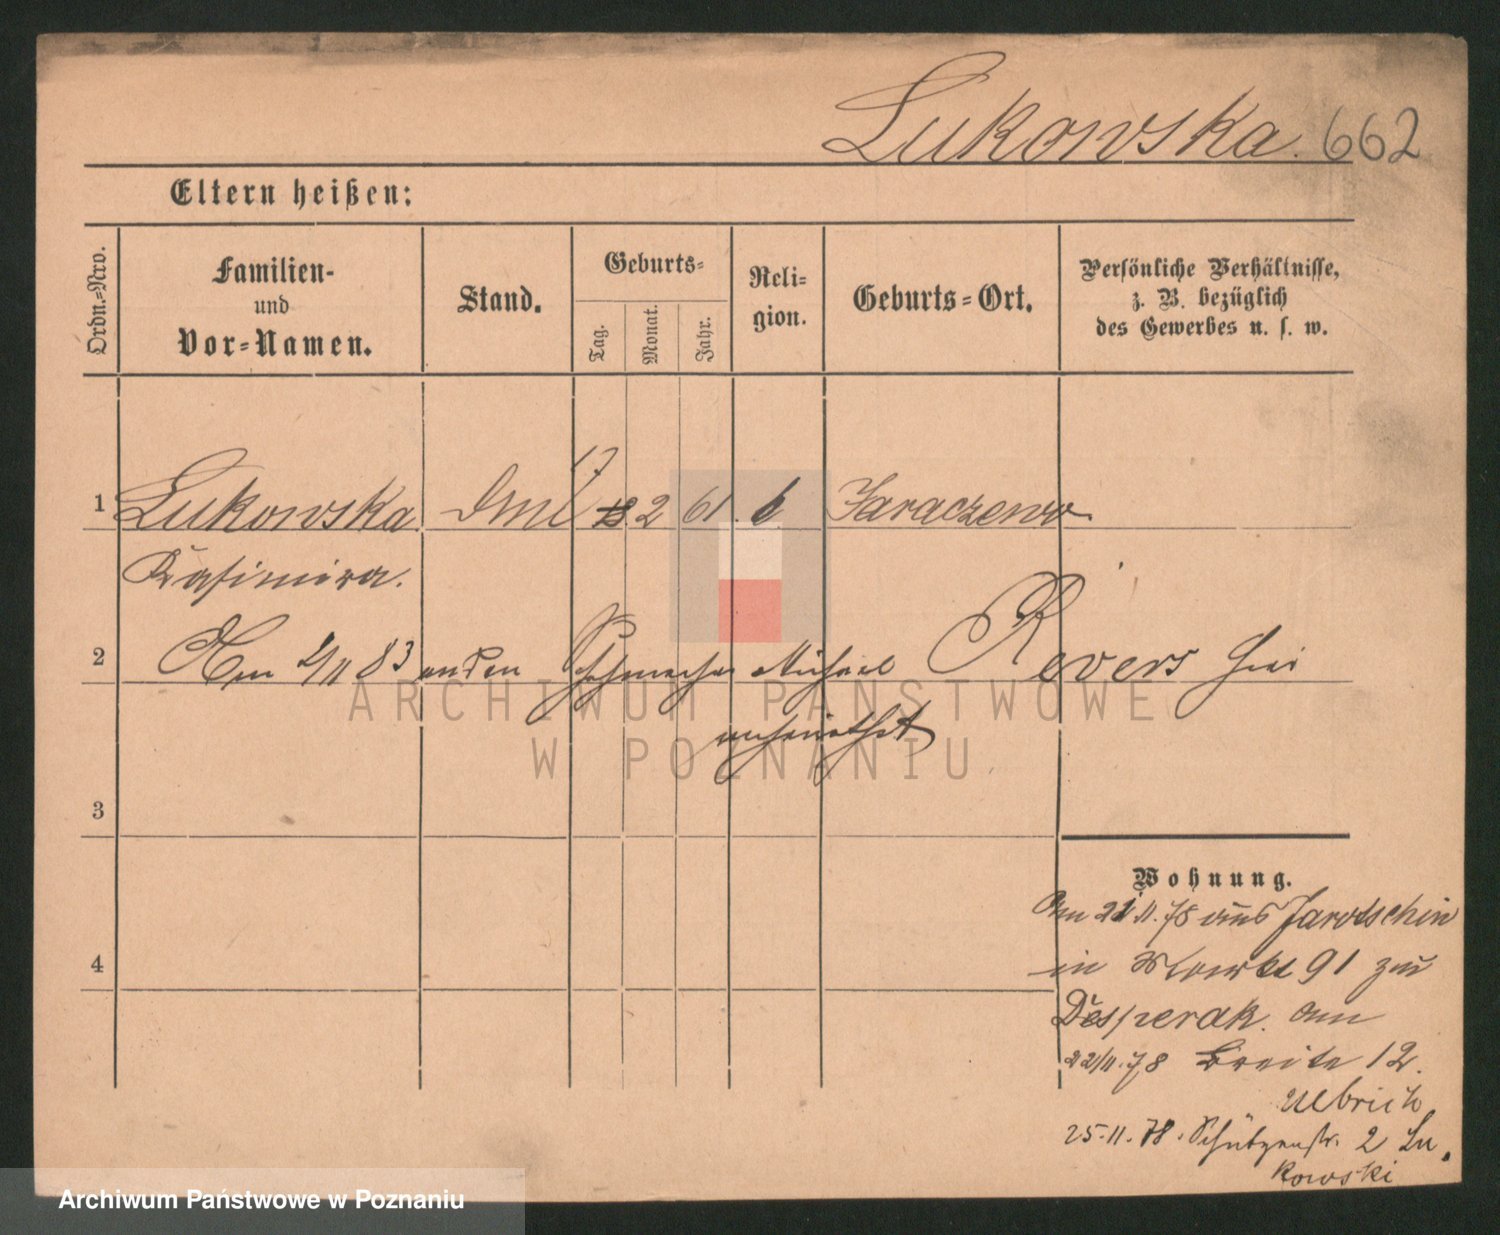 Lukowska. 662
Eltern heißen:
Ordn.=Nro.
Familien-
und
Vor=Namen.
Stand.
Geburts=
Tag.
Monat.
Jahr.
Reli=
gion.
Geburts=Ort.
Persönliche Verhältnisse,
z. B. bezüglich
des Gewerbes u. s. w.
17
1 Lukowska 2 61. k Jaraczewo
Kasimira.
2 Am 2/11 83 an den Schumacher Michael Revers hier
verheirathet
3
4
Wohnung.
Am 21.11.78 aus Jarotschin
in Markt 91 zu
Desperak. Am
22/11.78 Breite 12.
Ulbrich
25.11.78. Schützenstr. 2 Lu
kowski
ARCHIWUM PAŃSTWOWE
W POZNANIU
Archiwum Państwowe w Poznaniu